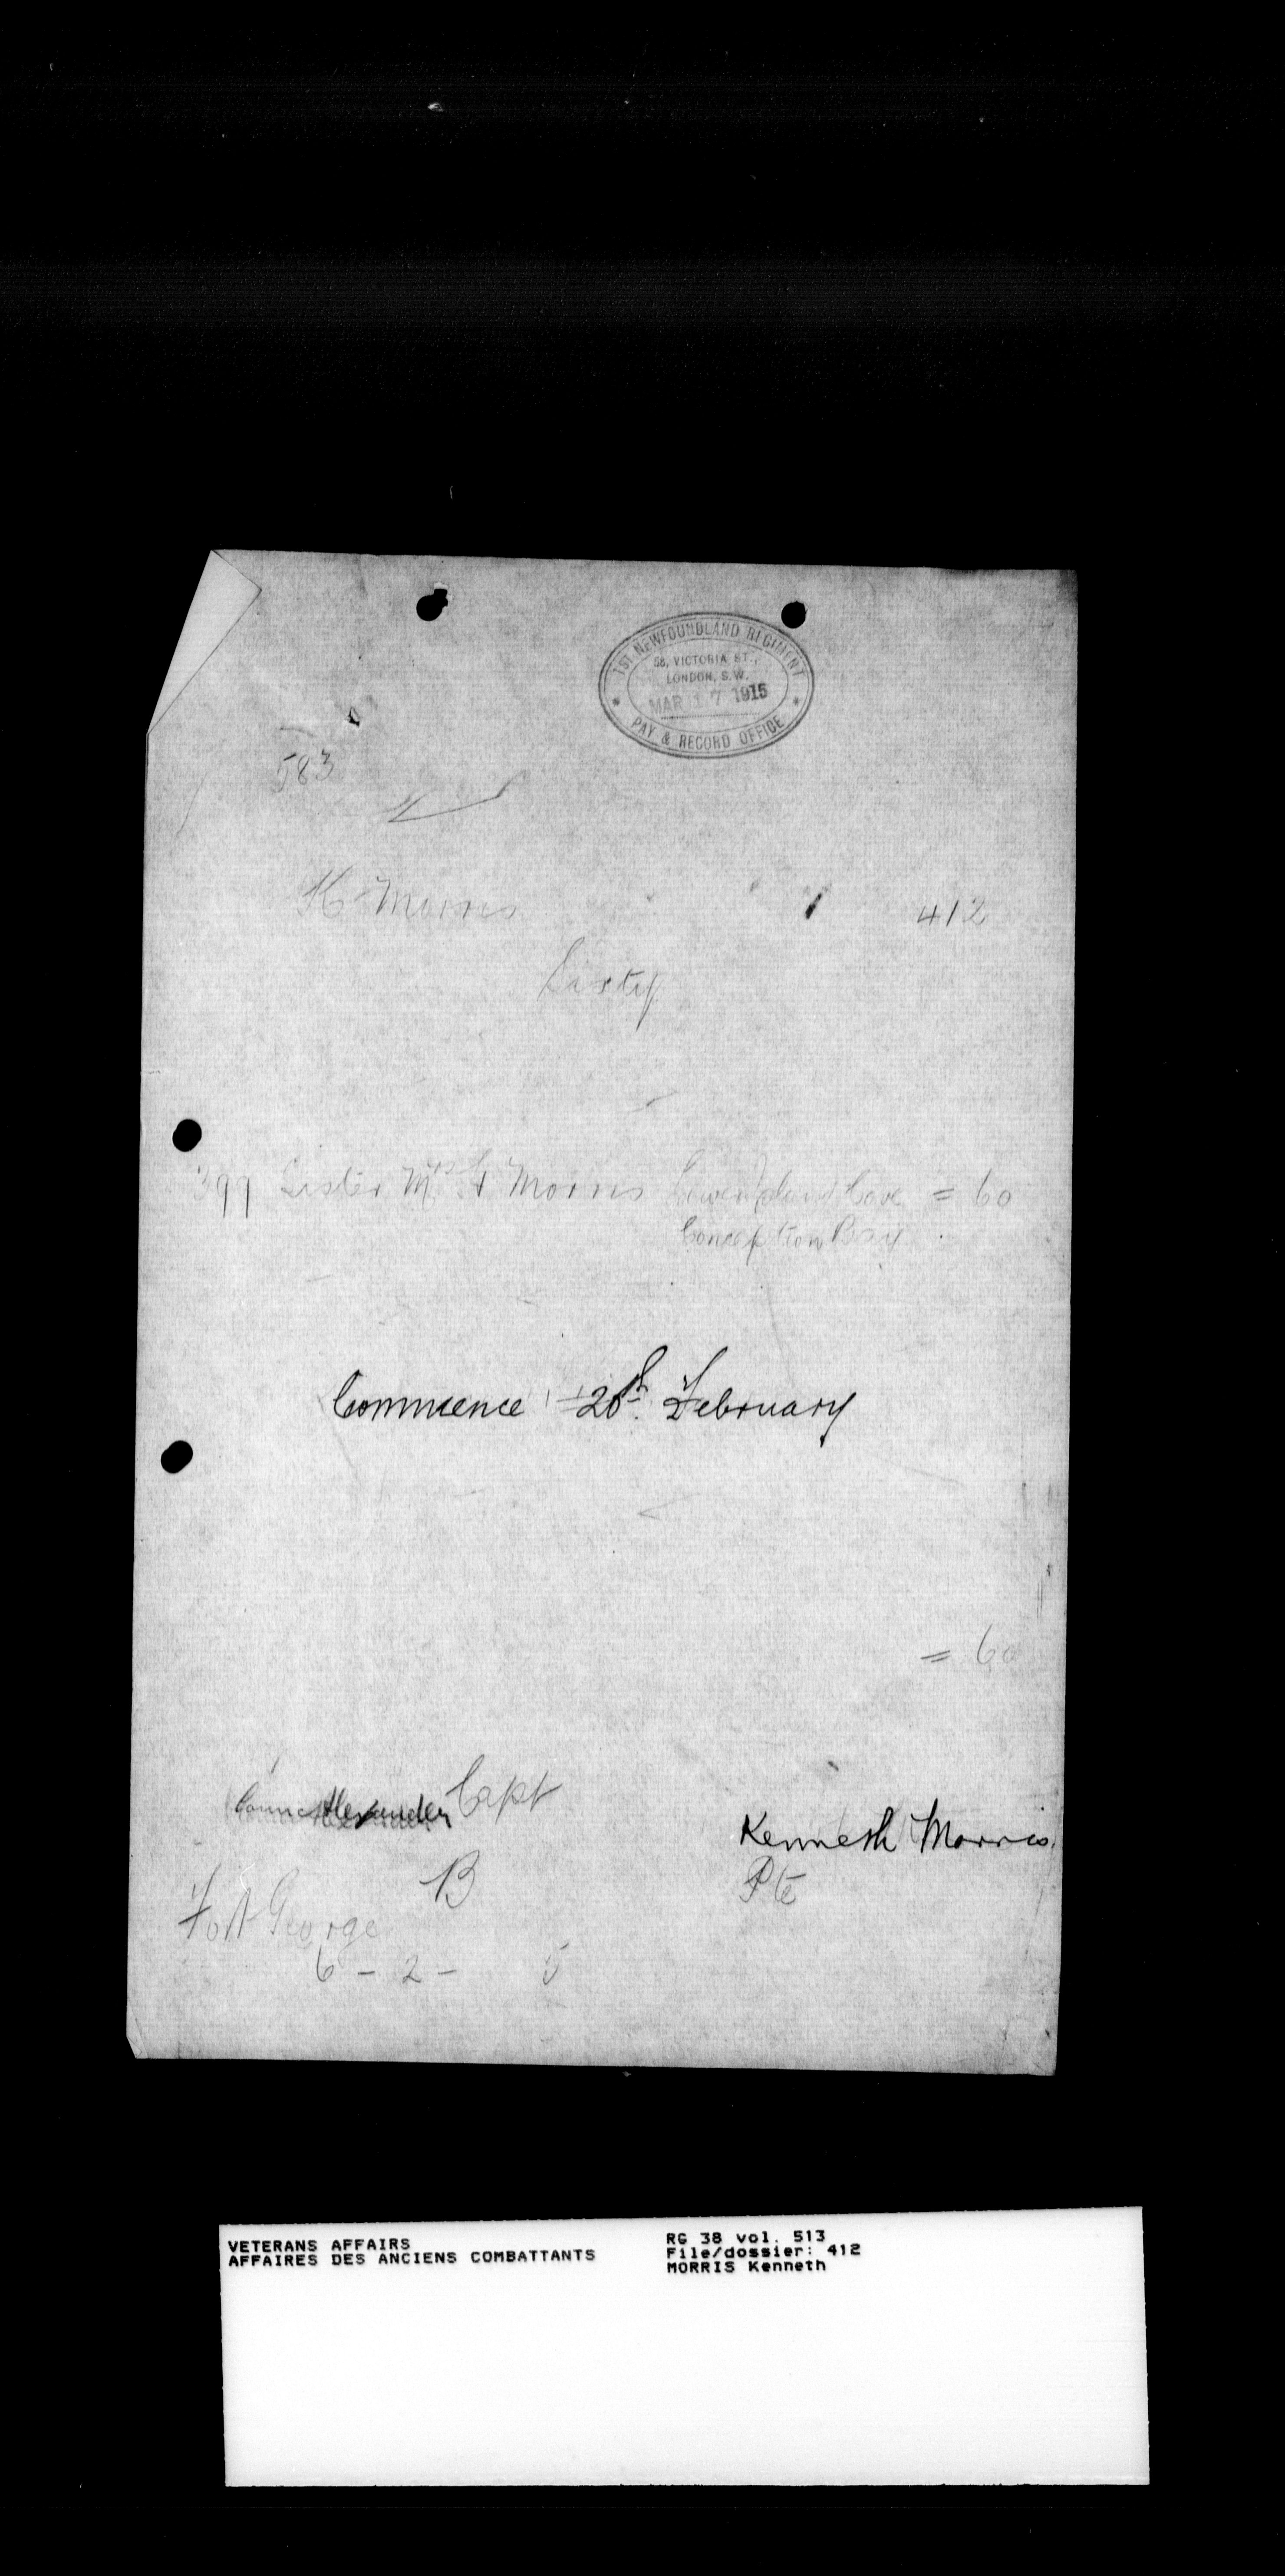 1ST NEWFOUNDLAND REGIMENT
58, VICTORIA ST.,
LONDON, S.W.
MAR 17 1915
PAY & RECORD OFFICE
583
K Morris 412
Sixty
399 Sister Mrs Morris Cove = 60
Conception Bay
Commence 20th February
= 60
Alexander Capt
Kenneth Morris
B
Pte
Fort George
6 - 2 - 5
VETERANS AFFAIRS
AFFAIRES DES ANCIENS COMBATTANTS
RG 38 vol. 513
File/dossier: 412
MORRIS Kenneth